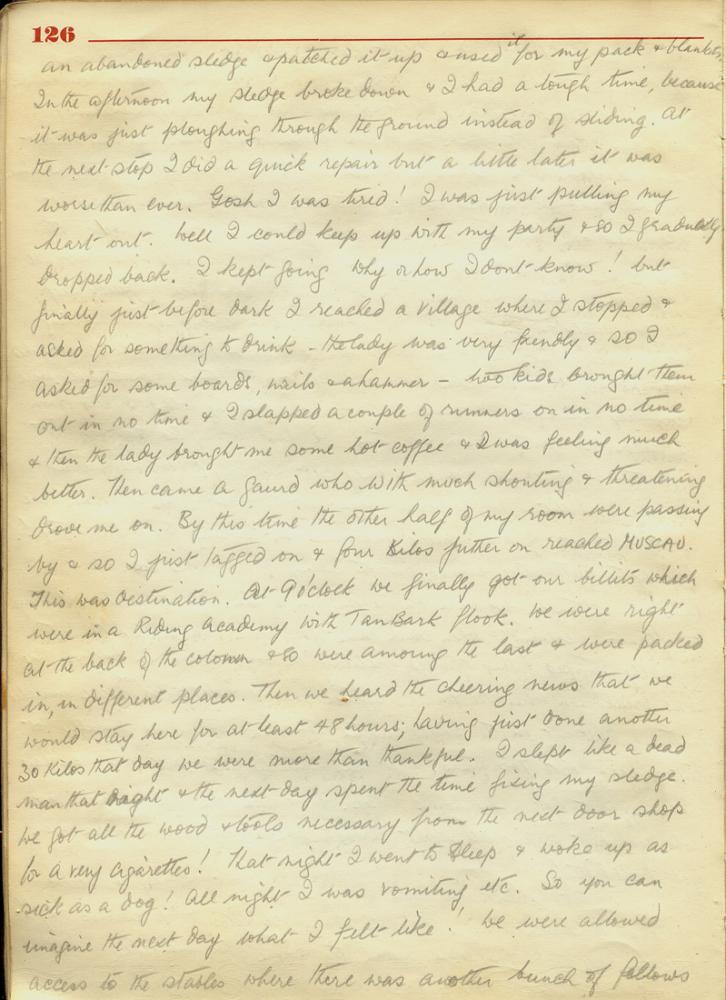 126
an abandoned sledge & patched it up & used it for my pack & blankets.
In the afternoon my sledge broke down & I had a tough time, because
it was just ploughing through the ground instead of sliding. At
the next stop I did a quick repair but a little later it was
worse than ever. Gosh I was tired! I was just pulling my
heart out. Well I could keep up with my party & so I gradually
dropped back. I kept going why or how I dont know! but
finally just before dark I reached a village where I stopped &
asked for something to drink - the lady was very friendly & so I
asked for some boards, nails & a hammer - two kids brought them
out in no time & I slapped a couple of runners on in no time
& then the lady brought me some hot coffee & I was feeling much
better. Then came a gaurd who with much shouting & threatening
drove me on. By this time the other half of my room were passing
by & so I just tagged on & four Kilos futher on reached MUSCAU.
This was destination. At 9 o'clock we finally got our billits which
were in a Riding Academy with Tan Bark flook. We were right
at the back of the colomn & so were amoung the last & were packed
in, in different places. Then we heard the cheering news that we
would stay here for at least 48 hours; having just done another
30 Kilos that day we were more than thankful. I slept like a dead
man that night & the next day spent the time fixing my sledge.
We got all the wood & tools necessary from the next door shop
for a very cigarettes! That night I went to sleep & woke up as
sick as a dog! All night I was vomiting etc. So you can
imagine the next day what I felt like! We were allowed
access to the stables where there was another bunch of fellows